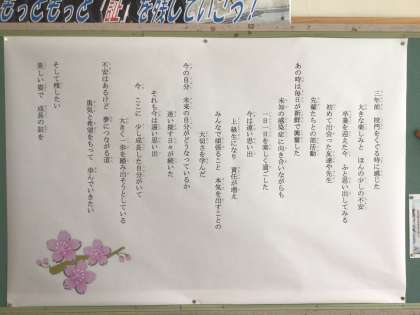 もっともっと「証」を残していこう!
三年前 校門をくぐる時に感じた
大きな楽しみと ほんの少しの不安
卒業を迎えた今 ふと思い出してみる
初めて出会った友達や先生
先輩たちとの部活動
あの時は毎日が新鮮で興奮した
未知の感染症に向き合いながらも
一日一日を楽しく過ごした
今は遠い思い出
上級生になり 責任が増え
みんなで頑張ること 本気を出すことの
大切さを学んだ
今の自分 未来の自分がどうなっているか
迷い探す日々が続いた
それも今は遠い思い出
今 ここに 少し成長した自分がいて
大きく一歩を踏み出そうとしている
不安はあるけど 夢につながる道
勇気と希望をもって 歩んでいきたい
そして残したい
美しい姿で 成長の証を